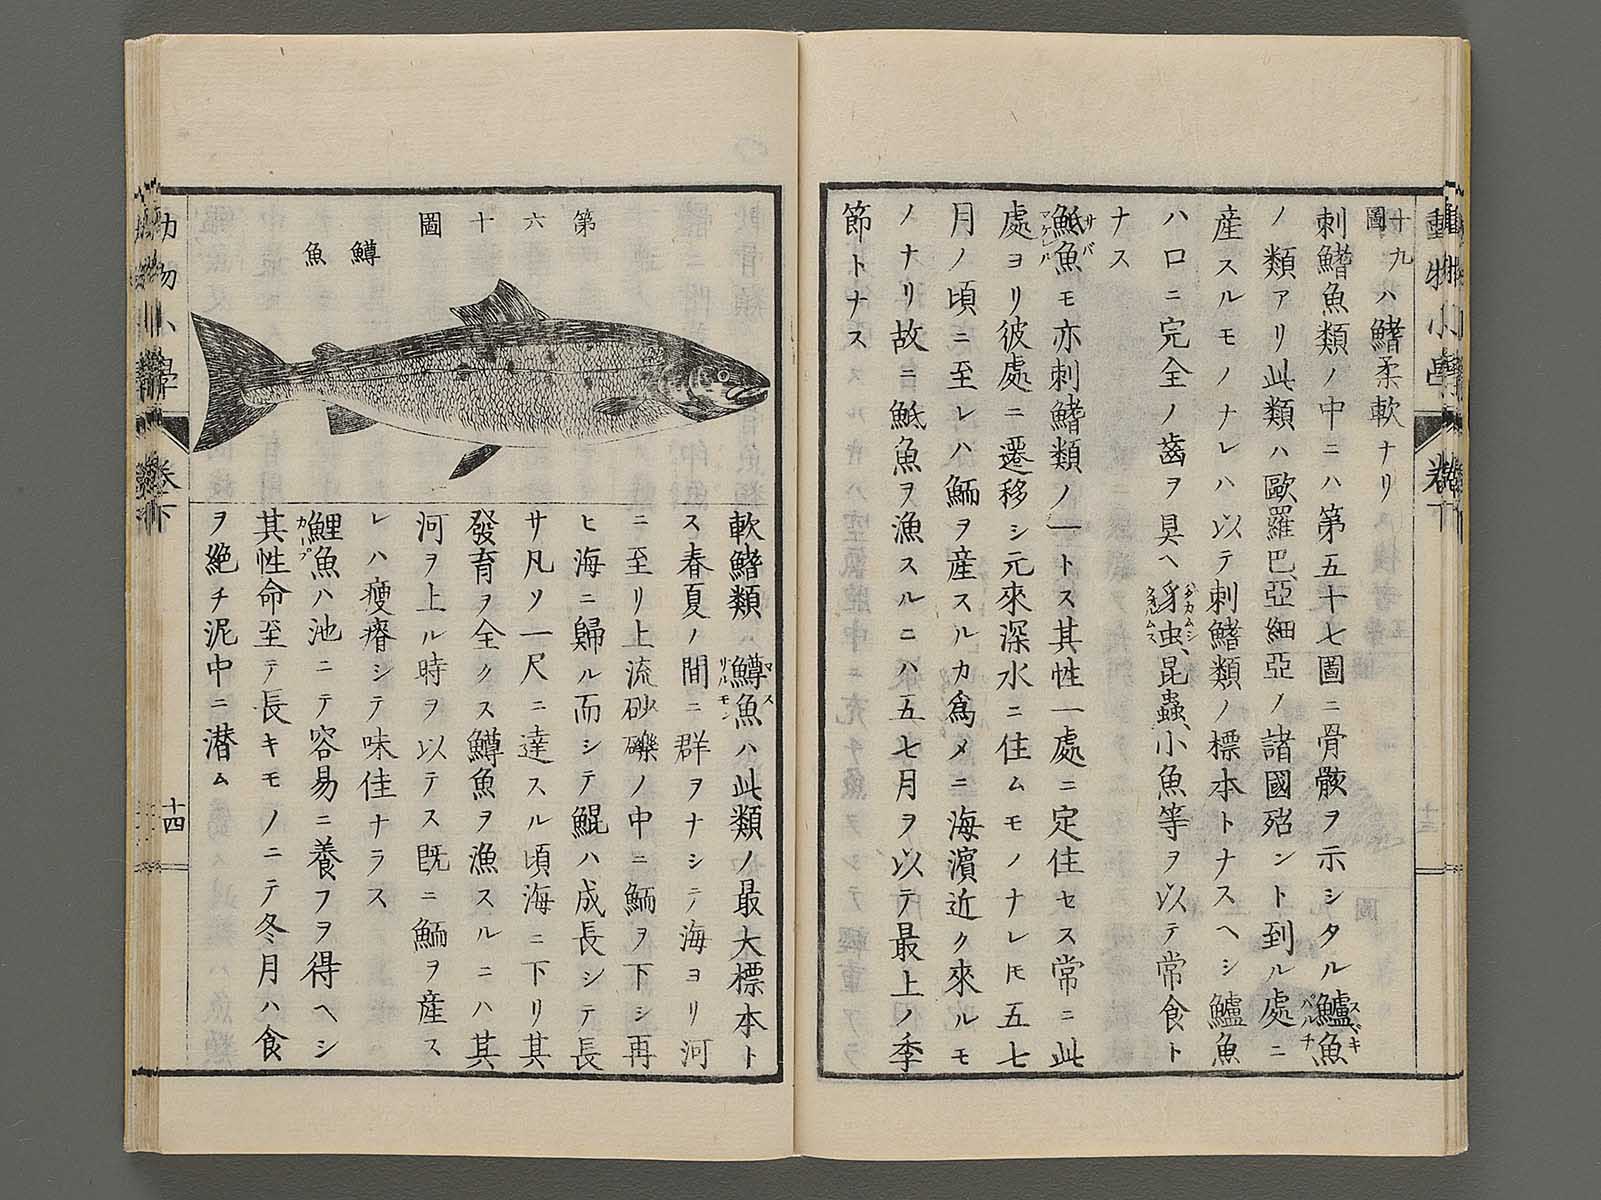 十九
圖ハ鰭柔軟ナリ
刺鰭魚類ノ中ニハ第五十七圖ニ骨骸ヲ示シタル鱸魚
スヾキ
パルチ
ノ類アリ此類ハ歐羅巴、亞細亞ノ諸國殆ント到ル處ニ
産スルモノナレハ以テ刺鰭類ノ標本トナスヘシ鱸魚
ハ口ニ完全ノ齒ヲ具ヘ身虫、昆蟲、小魚等ヲ以テ常食ト
ナス
魚モ亦刺鰭類ノ一トス其性一處ニ定住セス常ニ此
サバ
マケレル
處ヨリ彼處ニ遷移シ元來深水ニ住ムモノナレ𪜈五七
月ノ頃ニ至レハ鮞ヲ産スルカ爲メニ海濱近ク來ルモ
ノナリ故ニ魚ヲ漁スルニハ五七月ヲ以テ最上ノ季
節トナス
動物小學
卷下
第六十圖
鱒魚
軟鰭類ハ鱒魚ハ此類ノ最大標本ト
ス春夏ノ間ニ群ヲナシテ海ヨリ河
ニ至リ上流砂礫ノ中ニ鮞ヲ下シ再
ヒ海ニ歸ル而シテ鯤ハ成長シテ長
サ凡ソ一尺ニ達スル頃海ニ下リ其
發育ヲ全クス鱒魚ヲ漁スルニハ其
河ヲ上ル時ヲ以テス既ニ鮞ヲ産ス
レハ瘦瘠シテ味佳ナラス
鯉魚ハ池ニテ容易ニ養フヲ得ヘシ
カープ
其性命至テ長キモノニテ冬月ハ食
ヲ絶チ泥中ニ潜ム
動物小學
卷下
十四